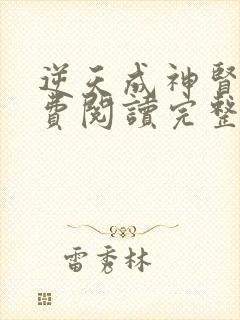 逆天成神腎
費閱讀完整
雷秀林